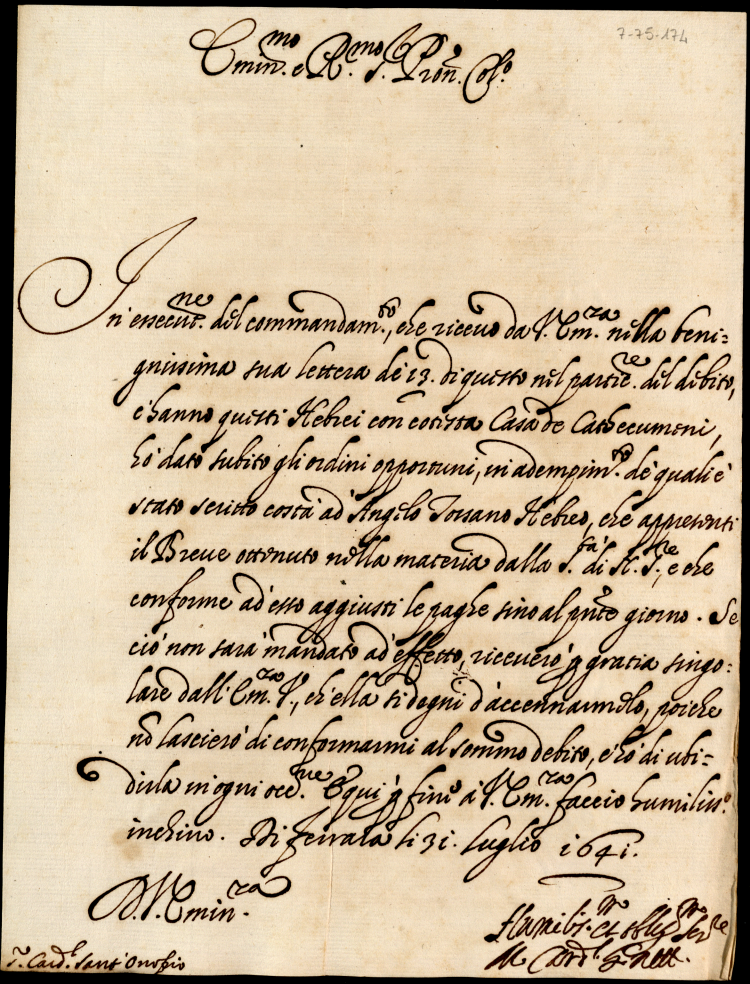 7-75-174
Emin.mo e R.mo S. Pron. Col.o
In essecut.ne del commandam.to, che ricevo da V. Em.ra nella beni=
gnissima sua lettera de' 13. di questo nel partic.re del debito,
c'hanno questi Hebrei con cotesta Casa de Cathecumeni,
hò dato subito gli ordini opportuni, in adempim.to de' quali è
stato scritto costà ad Angelo Torsano Hebreo, che appresenti
il Breve ottenuto nella materia dalla S.tà di N. S.re, e che
conforme ad esso aggiusti le paghe sino al pnte giorno. Se
ciò non sarà mandato ad effetto, riceverò p gratia singo=
lare dall'Em.za V., ch'ella si degni d'accennarmelo, poiche
nò lascierò di conformarmi al sommo debito, c'hò di ubi=
dirla in ogni occ.ne E qui p fine à V. Em.ra faccio humiliss.o
inchino. Di Ferrara li 31. Luglio 1641.
D. V. Emin.ra
Humilis.mo et obblig.mo ser.re
Il Card.l Ginetti
S. Card.l Sant'Onofrio